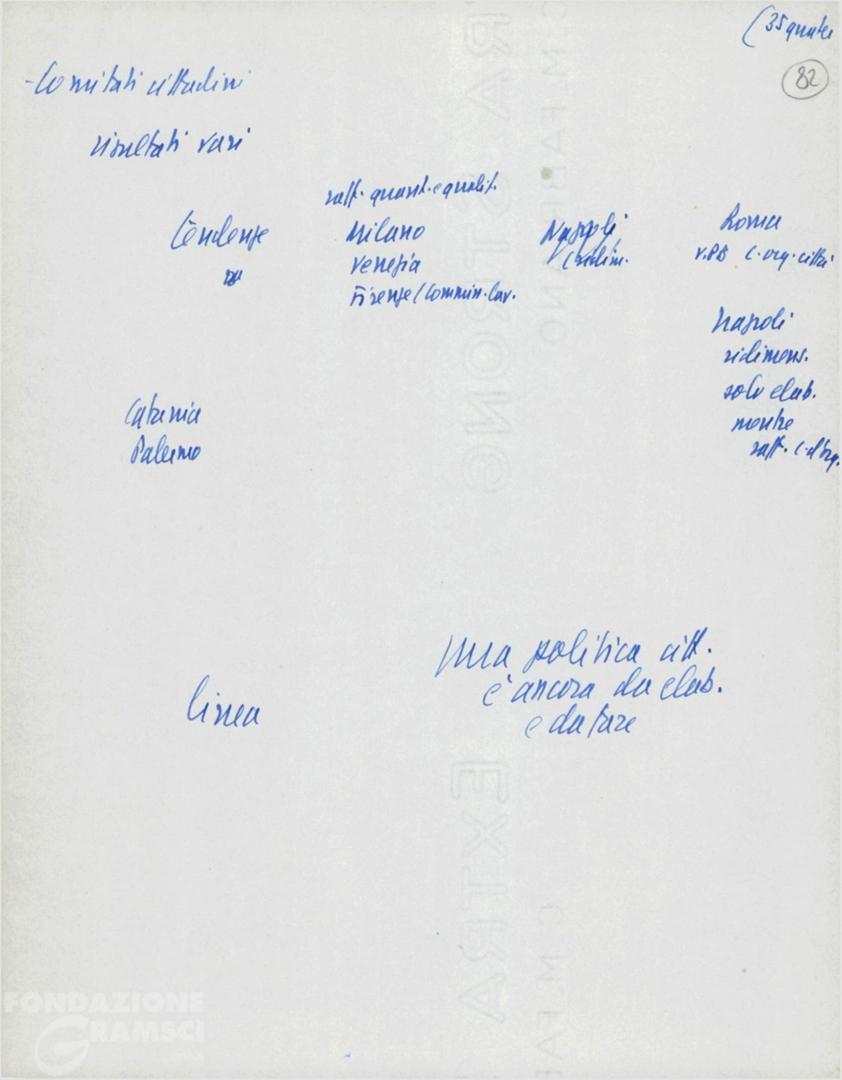 (35 quater
82
- Comitati cittadini
risultati vari
raff. quant. e qualit.
Tendenze
Milano
Venezia
Firenze (Commin. lav.
Napoli
(ridim.
Roma
v. PB C. org. città
Napoli
ridimens.
solo elab.
mentre
raff. C. d'org.
Catania
Palermo
linea
una politica citt.
è ancora da elab.
e da fare
C.M. FABRIANO
EXTRA STRONG
C.M. FA
FONDAZIONE
GRAMSCI